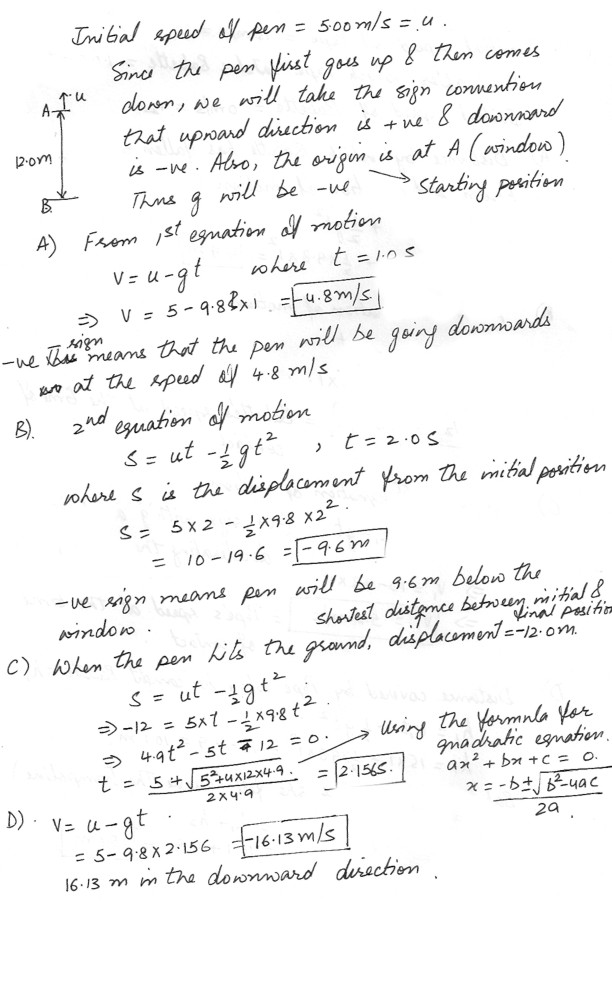 Initial speed of pen = 5.00 m/s = u.
Since the pen first goes up & then comes
down, we will take the sign convention
that upward direction is +ve & downward
is -ve. Also, the origin is at A (window)
Thus g will be -ve
→ Starting position
A ↑ u
12.0m
B
A) From 1st equation of motion
v = u - gt where t = 1.0 s
⇒ v = 5 - 9.8 × 1 = -4.8 m/s
-ve sign means that the pen will be going downwards
at the speed of 4.8 m/s
B). 2nd equation of motion
S = ut - 1/2 gt² , t = 2.0 s
where s is the displacement from the initial position
S = 5 × 2 - 1/2 × 9.8 × 2².
= 10 - 19.6 = -9.6 m
-ve sign means pen will be 9.6 m below the
window.
shortest distance between initial &
final position
C) When the pen hits the ground, displacement = -12.0 m.
S = ut - 1/2 gt²
⇒ -12 = 5×t - 1/2 × 9.8 t².
⇒ 4.9t² - 5t - 12 = 0.
→ Using the formula for
quadratic equation.
ax² + bx + c = 0.
x = (-b ± √(b² - 4ac)) / 2a.
t = (5 + √(5² + 4×12×4.9)) / (2×4.9) = 2.156s.
D). v = u - gt.
= 5 - 9.8 × 2.156 = -16.13 m/s
16.13 m in the downward direction.